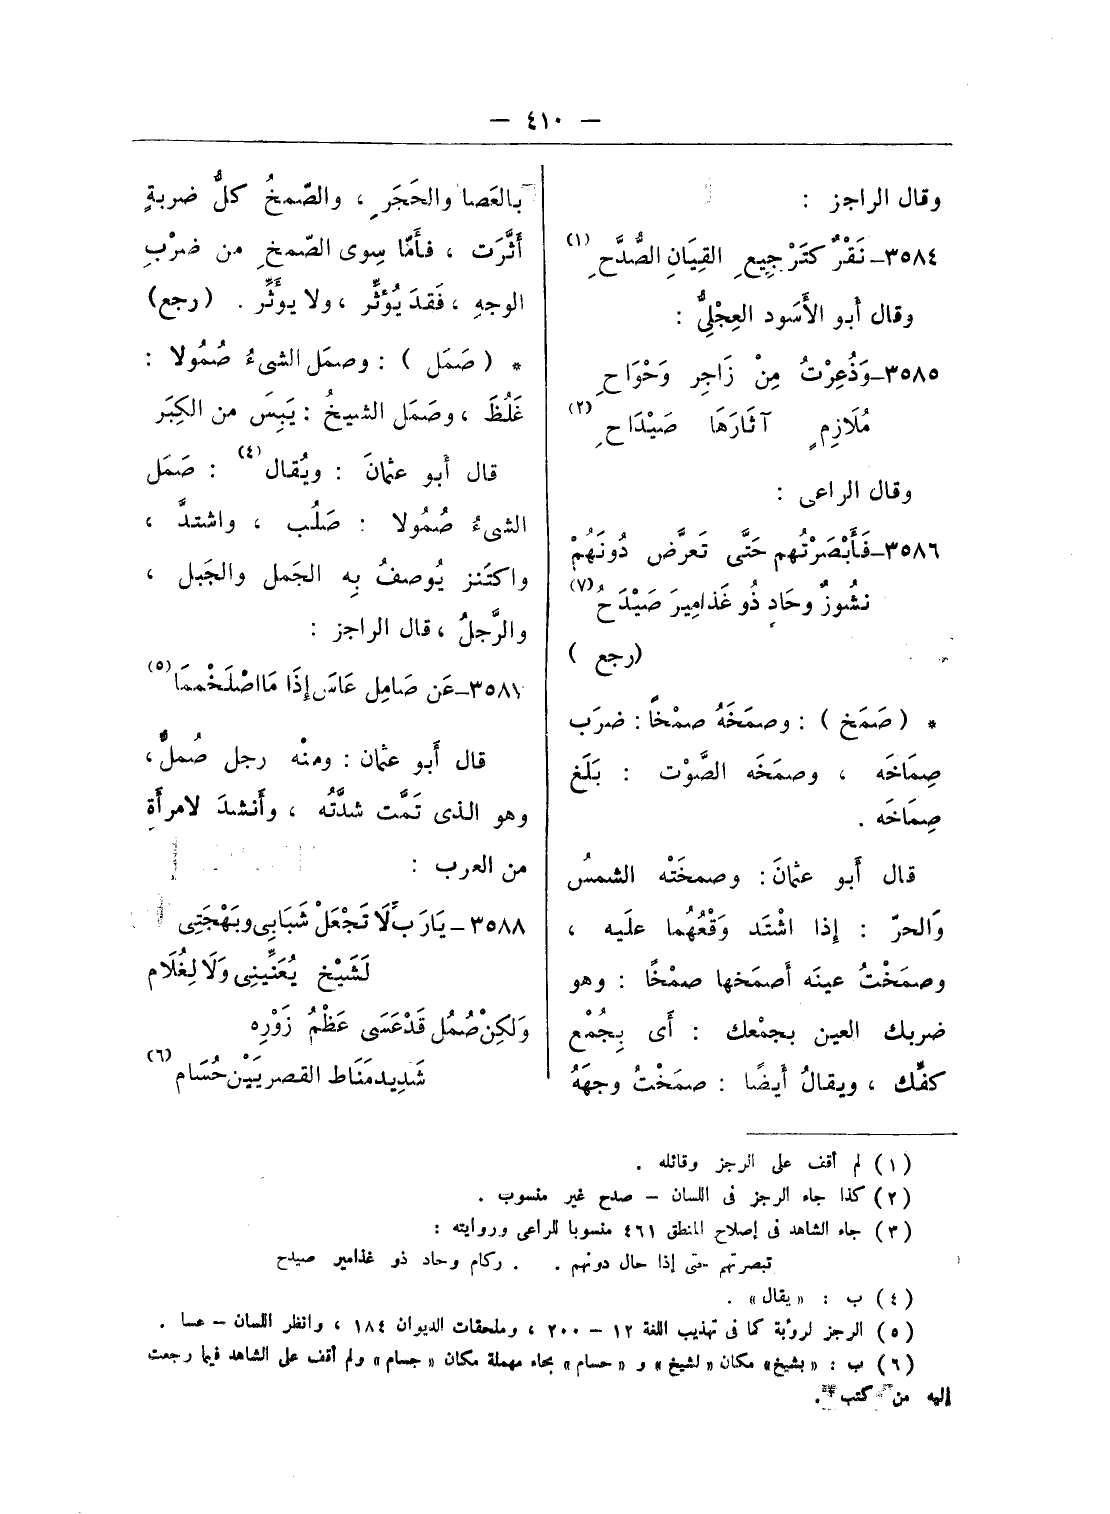 — ٤١٠ —
وقال الراجز :
٣٥٨٤ـ نَقْرٌ كتَرْجِيعِ القِيَانِ الصُّدَّحِ (١)
وقال أبو الأَسَود العِجْلِىُّ :
٣٥٨٥ـ وَذُعِرْتُ مِنْ زَاجِرٍ وَحْوَاحِ
مُلَازِمٍ آثَارَهَا صَيْدَاحِ (٢)
وقال الراعى :
٣٥٨٦ـ فَأَبْصَرْتُهم حَتَّى تَعرَّض دُونَهُمْ
نشُوزٌ وحَادٍ ذُو غَذامِيرَ صَيْدَحُ (٧)
(رجع )
* ( صَمَخ ) : وصمَخَهُ صمْخاً : ضرَب
صِمَاخَه ، وصمَخَه الصَّوْت : بَلَغ
صِمَاخَه .
قال أَبو عثمانَ : وصمخَتْه الشمسُ
وَالحرّ : إذا اشْتَد وَقْعُهُما علَيه ،
وصمَخْتُ عينَه أصمَخها صمْخًا : وهو
ضربك العين بجمْعك : أَى بِجُمْعِ
كفِّك ، ويقالُ أَيضًا : صمَخْتُ وجهَهُ
بالعَصا والحَجَرِ ، والصَّمخُ كلُّ ضربةٍ
أَثَّرَت ، فأَمَّا سِوى الصَّمخِ من ضرْبِ
الوجهِ ، فَقدَ يُؤثِّر ، ولا يوثِّر . (رجع)
* ( صَمَل ) : وصمَل الشىءُ صُمُولا :
غَلُظَ ، وصَمَل الشيخُ : يَبِسَ من الكِبَر
قال أَبو عثمانَ : ويُقال (٤) : صَمَل
الشىءُ صُمُولا : صَلُب ، واشتدَّ ،
واكتَنز يُوصفُ بِه الجَمل والجَبل ،
والرَّجلُ ، قال الراجز :
٣٥٨٧ـ عَن صَامِل عَاسٍ إذَا مَا اصْلَخْمَمَا (٥)
قال أَبو عثمان : ومنْه رجل صُملٌّ ،
وهو الذى تَمَّت شدَّتُه ، وأَنشدَ لامرأَةِ
من العرب :
٣٥٨٨ ـ يَارَبِّ لَا تَجْعَلْ شَبَابِى وبَهْجَتِى
لَشَيْخٍ يُعَنِّينِى وَلَا لِغُلَام
وَلكِنْ صُمُل قَدْ عَسَى عَظْمُ زَوْرِه
شَدِيد مَنَاط القصريَيْن حُسَام (٦)
(١) لم أقف على الرجز وقائله .
(٢) كذا جاء الرجز فى اللسان – صدح غير منسوب .
(٣) جاء الشاهد فى إصلاح المنطق ٤٦١ منسوبا للراعى وروايته :
تبصرتهم حتى إذا حال دونهم . . ركام وحاد ذو غذامير صيدح
(٤) ب : «يقال» .
(٥) الرجز لرؤبة كما فى تهذيب اللغة ١٢ – ٢٠٠ ، وملحقات الديوان ١٨٤ ، وانظر اللسان – عسا .
(٦) ب : «بشيخ» مكان «لشيخ» و «حسام» بحاء مهملة مكان «جسام» ولم أقف على الشاهد فيما رجعت
إليه من كتب .